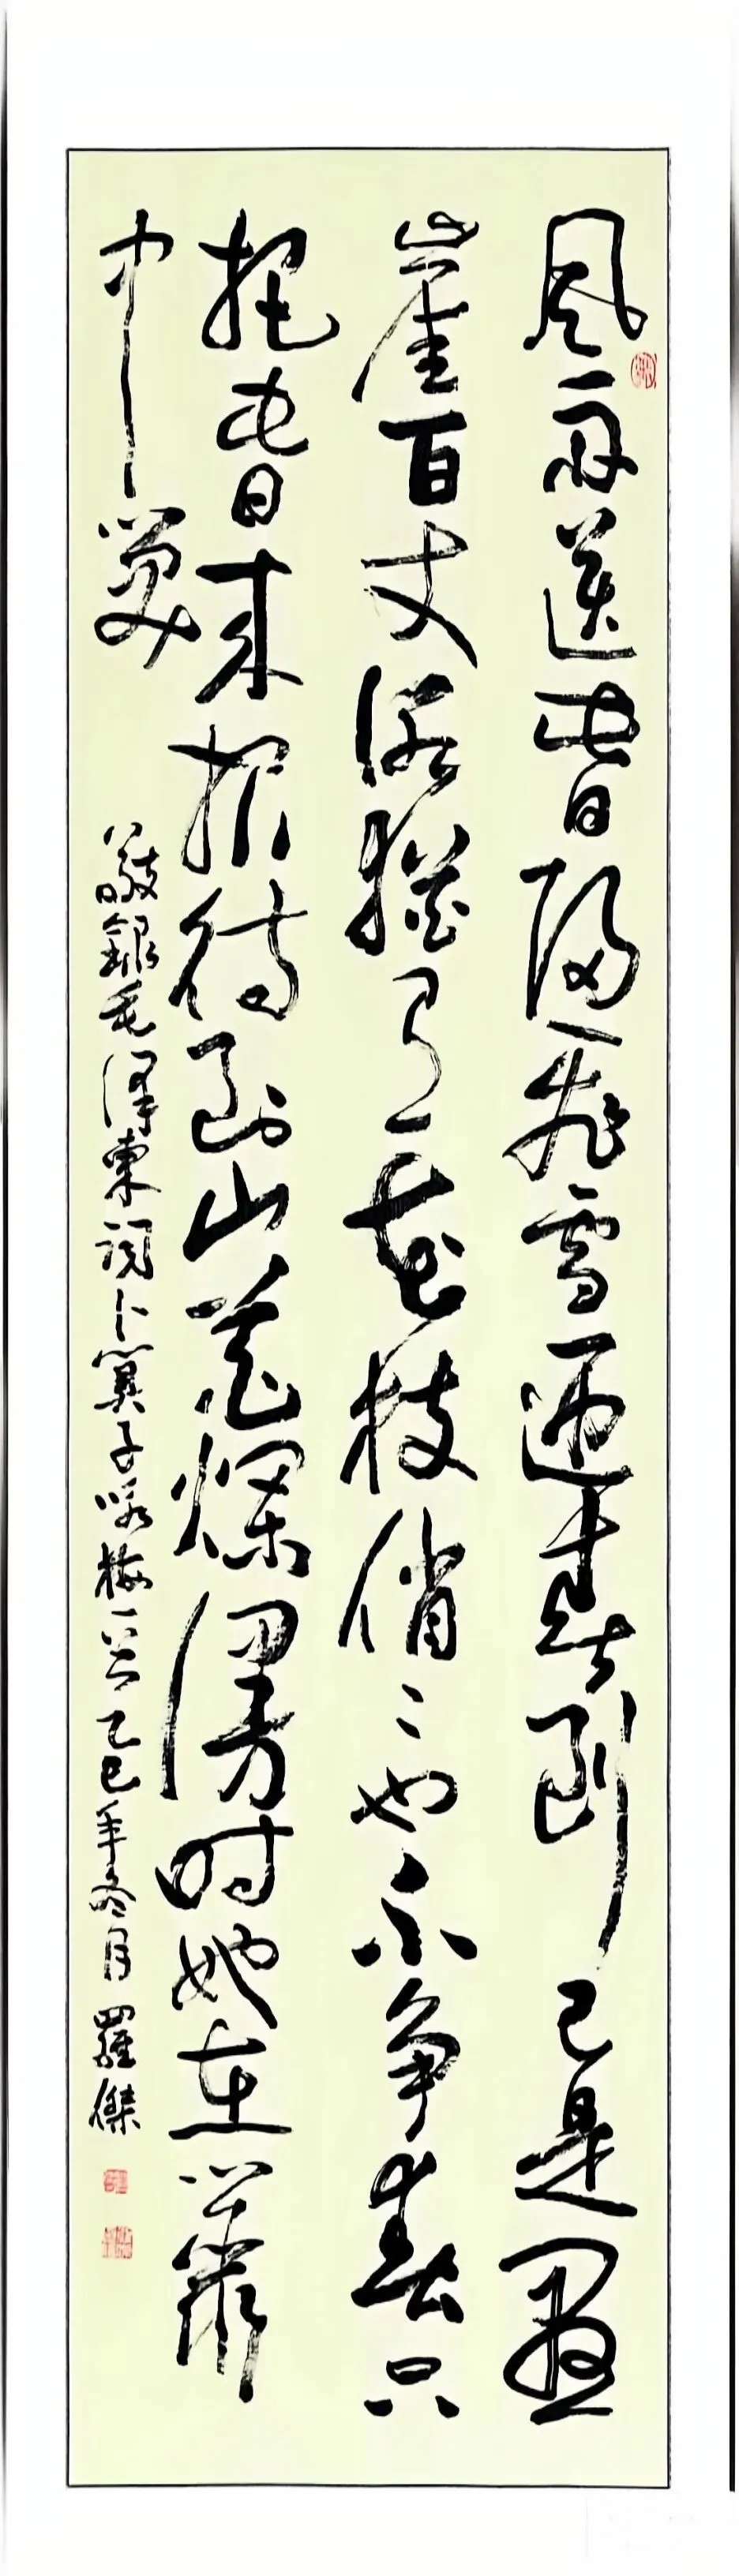 風雨送春歸飛雪迎春到已是懸
崖百丈冰猶有花枝俏〻也不争春只
把春來報待到山花爛漫时她在叢
中笑
敬録毛澤東詞卜算子咏梅一首乙巳年冬月羅傑